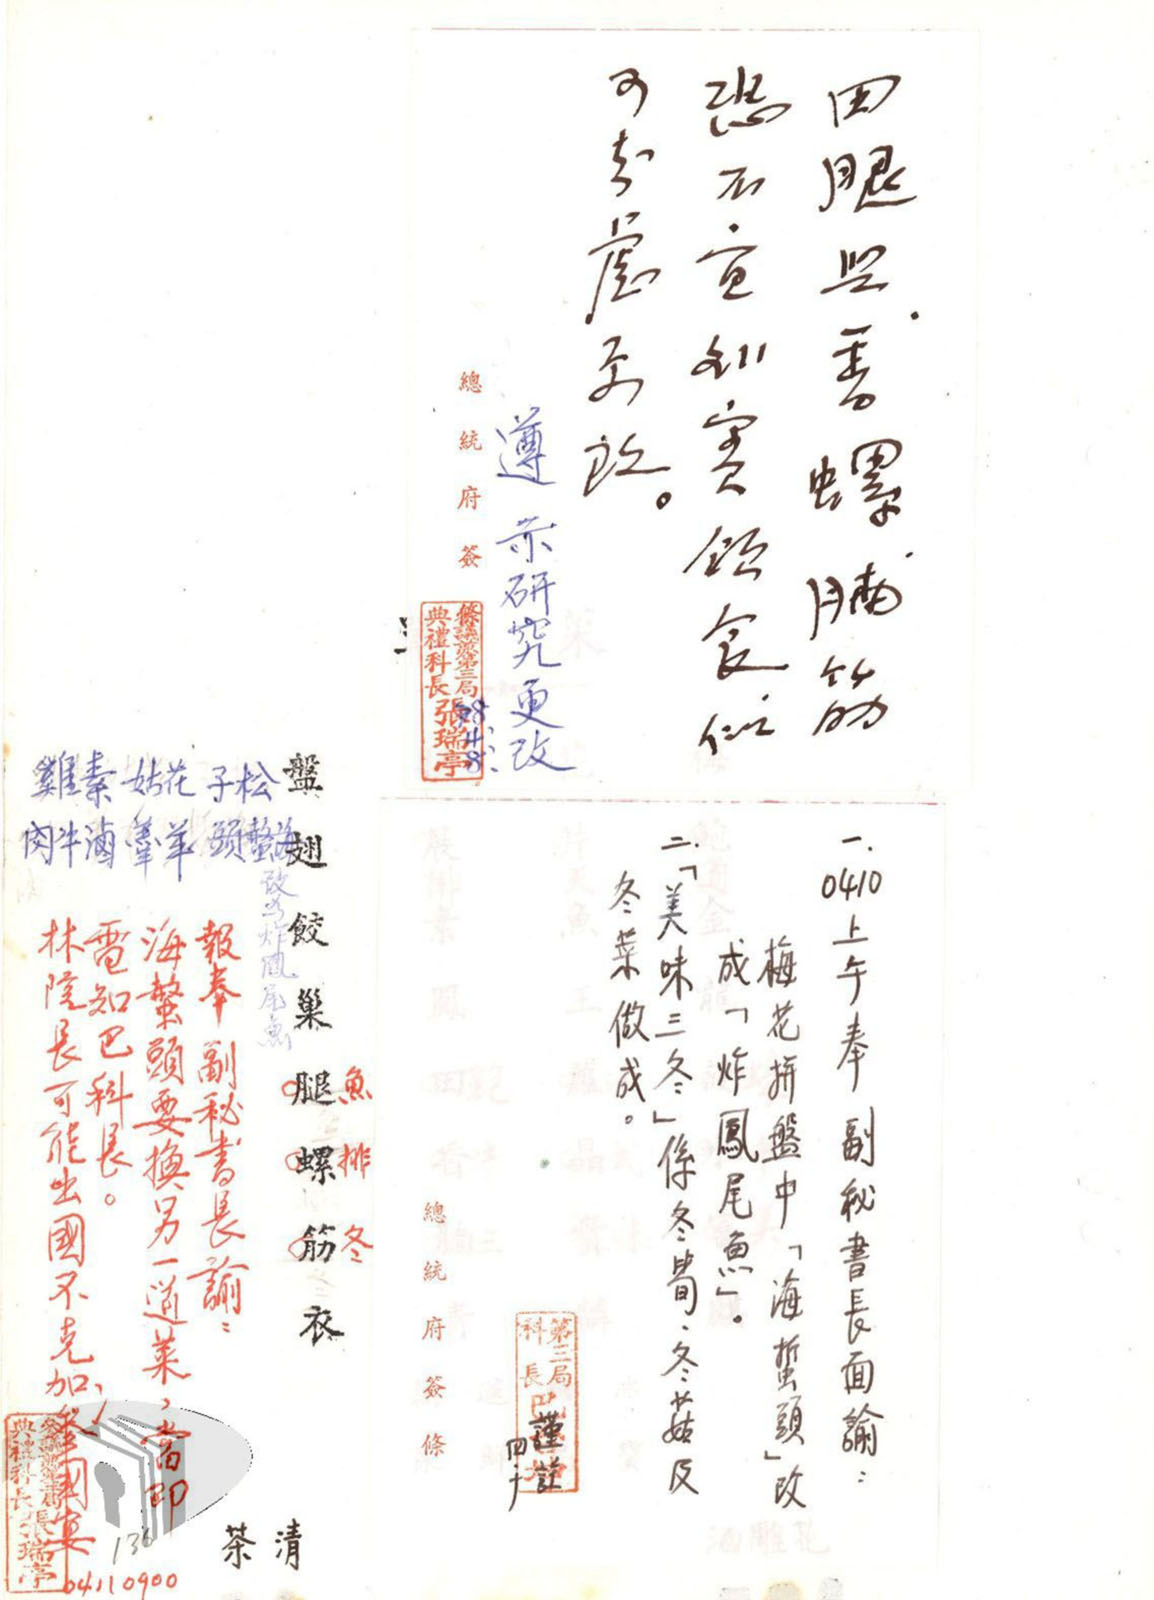 田腿與香螺腩筋
恐不宜利賓飲食似
可考慮更改。
遵示研究更改
總統府簽
參議兼第三局
典禮科長張瑞亭
48.
一.0410上午奉副秘書長面諭：
梅花拼盤中「海蜇頭」改
成「炸鳳尾魚」。
二.「美味三冬」係冬筍、冬菇及
冬菜做成。
總統府簽條
第三局
科長巴
謹註
盤翅餃巢腿螺筋衣
魚排冬
松子
海蜇頭
花菇
羊羹
素雞
滷牛肉
改為炸鳳尾魚
報奉副秘書長諭：
海蜇頭要換另一道菜，當即
電知巴科長。
林院長可能出國不克參加國宴
04110900
參議兼第三局
典禮科長張瑞亭
136
清茶